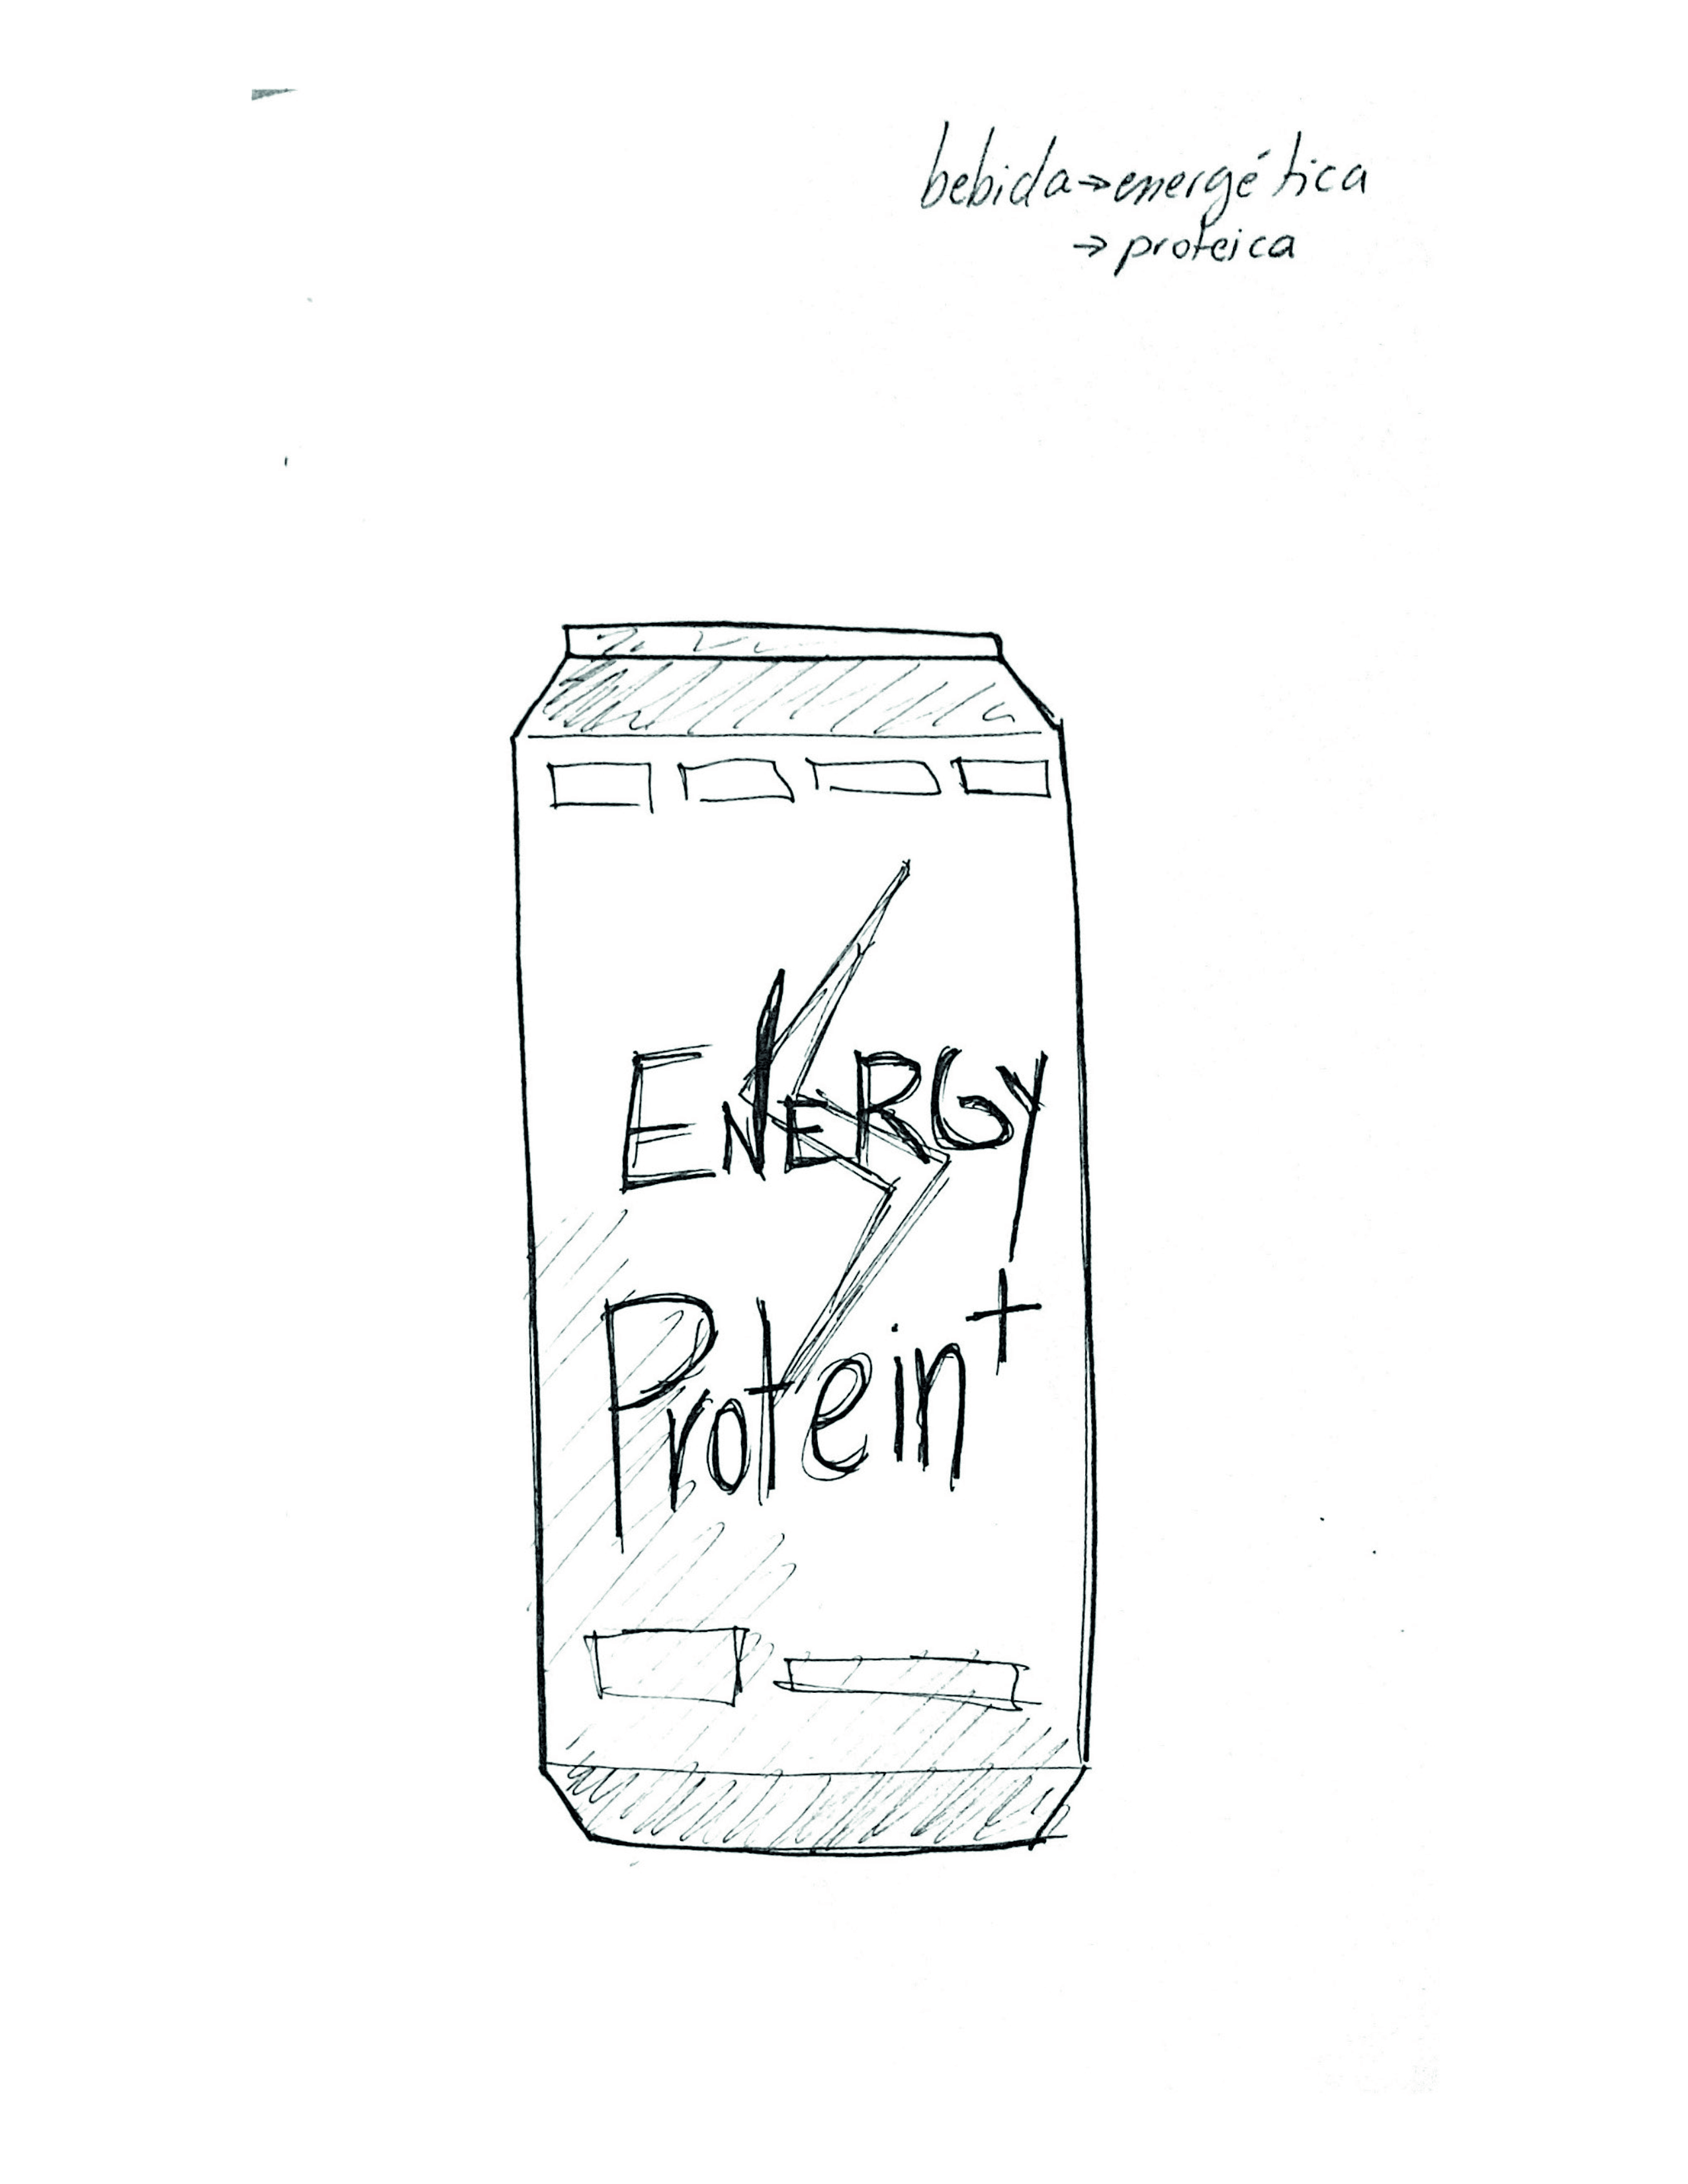 bebida→energética
→ proteica
ENERGY
Protein+